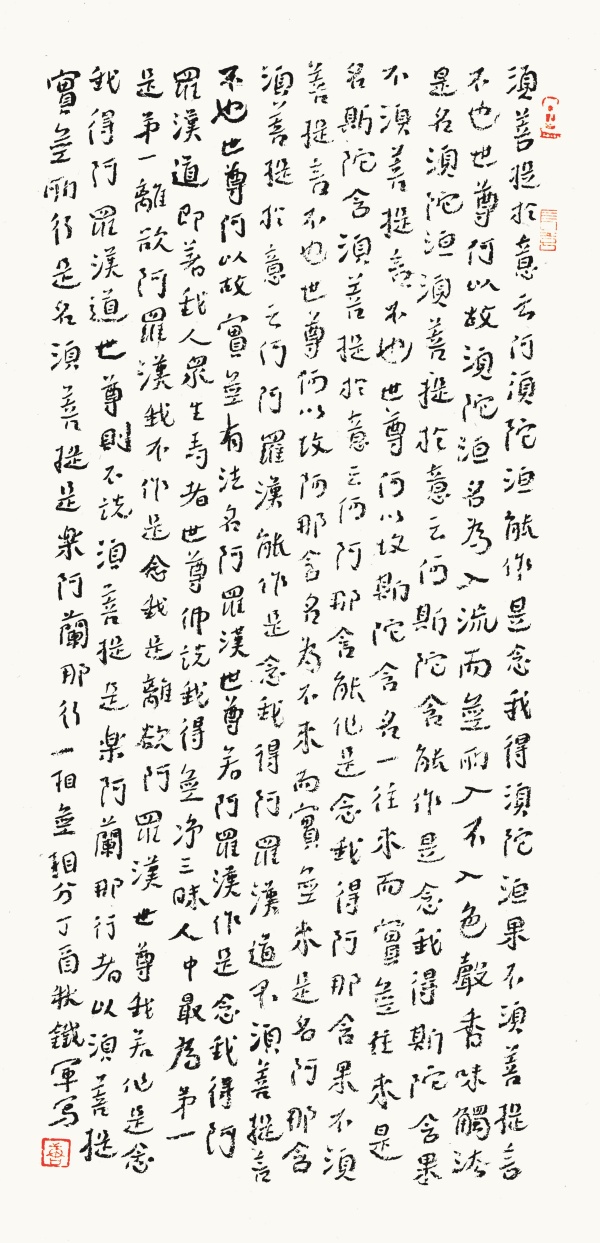 須菩提於意云何須陀洹能作是念我得須陀洹果不須菩提言
不也世尊何以故須陀洹名為入流而無所入不入色聲香味觸法
是名須陀洹須菩提於意云何斯陀含能作是念我得斯陀含果
不須菩提言不也世尊何以故斯陀含名一往來而實無往來是
名斯陀含須菩提於意云何阿那含能作是念我得阿那含果不須
菩提言不也世尊何以故阿那含名為不來而實無來是名阿那含
須菩提於意云何阿羅漢能作是念我得阿羅漢道不須菩提言
不也世尊何以故實無有法名阿羅漢世尊若阿羅漢作是念我得阿
羅漢道即著我人眾生壽者世尊佛說我得無净三昧人中最為第一
是第一離欲阿羅漢我不作是念我是離欲阿羅漢世尊我若作是念
我得阿羅漢道世尊則不說須菩提是樂阿蘭那行者以須菩提
實無所行是名須菩提是樂阿蘭那行一相無相分丁酉秋鐵軍写